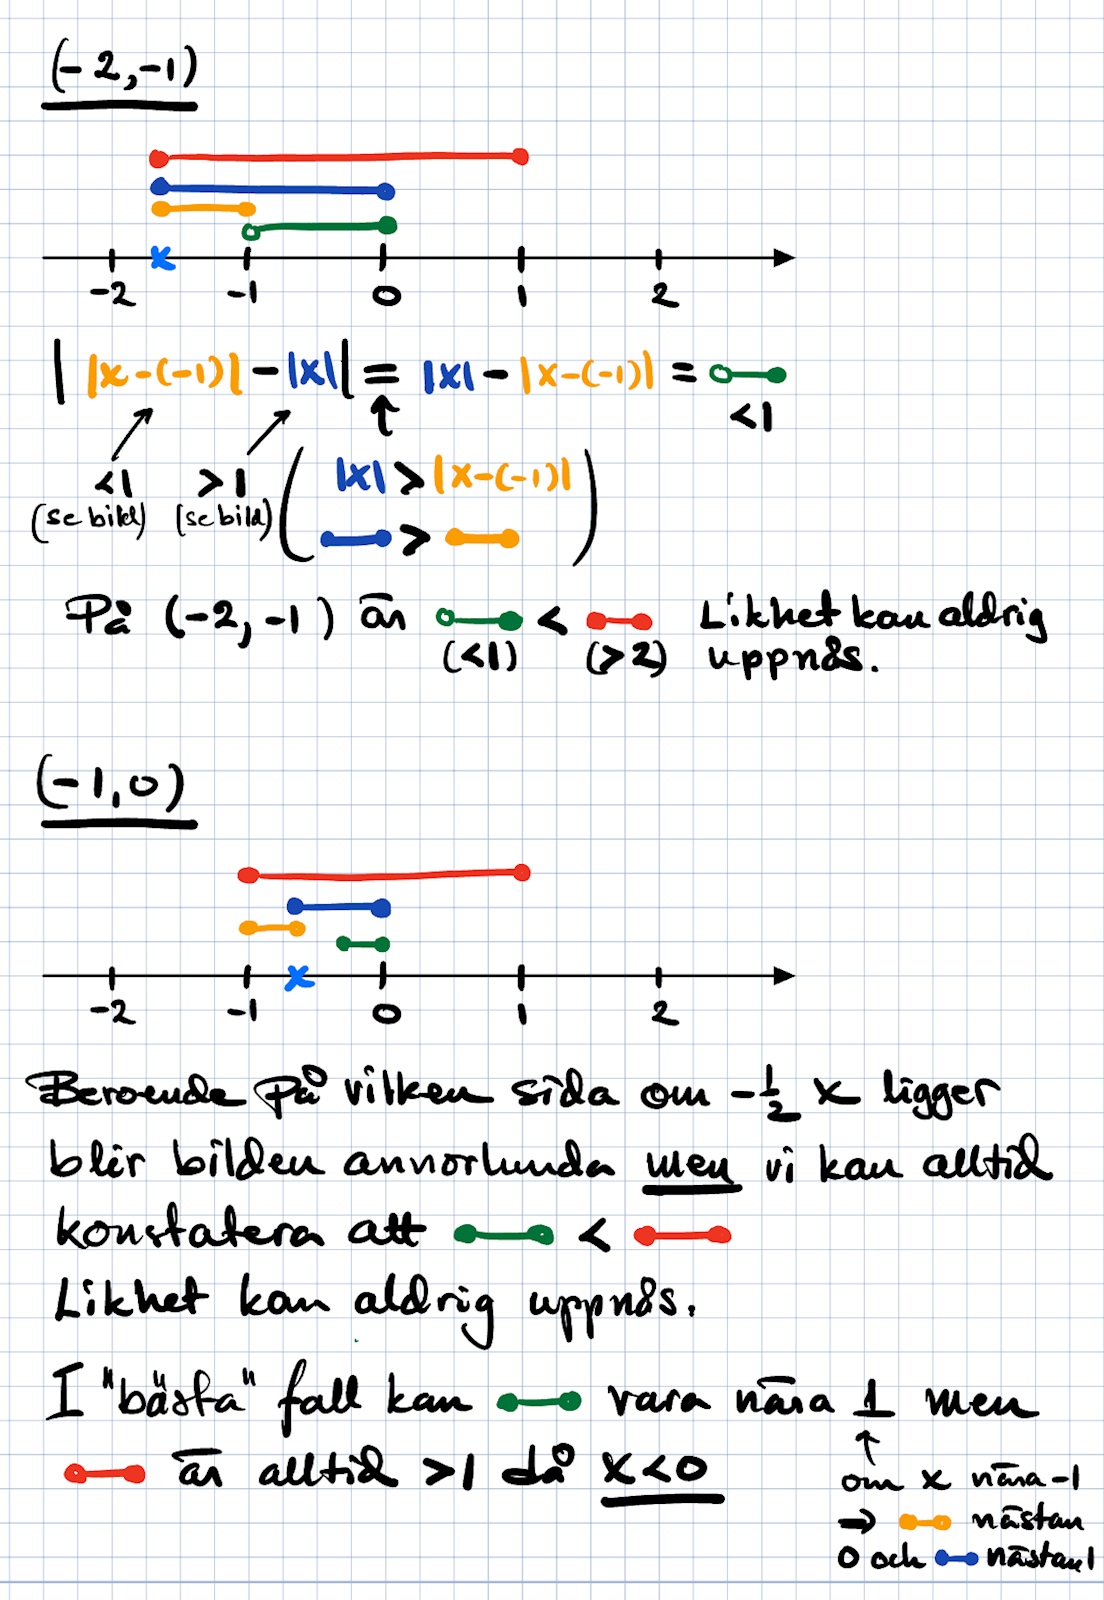 (-2,-1)
-2 -1 0 1 2
| |x-(-1)| - |x| | = |x| - |x-(-1)| =
<1
<1 >1 ( |x| > |x-(-1)| )
(se bild) (se bild) >
På (-2,-1) är < Likhet kan aldrig
(<1) (>2) uppnås.
(-1,0)
-2 -1 0 1 2
Beroende på vilken sida om -1/2 x ligger
blir bilden annorlunda men vi kan alltid
konstatera att <
Likhet kan aldrig uppnås.
I "bästa" fall kan vara nära 1 men
är alltid >1 då x<0
om x nära -1
⇒ nästan
0 och nästan 1